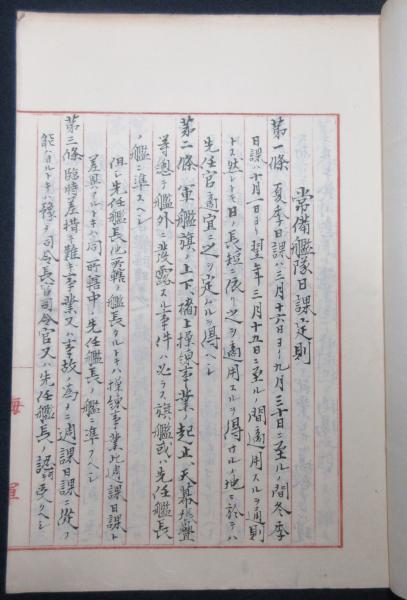 常備艦隊日課定則
第一條 夏季日課ハ三月十六日ヨリ九月三十日ニ至ル間冬季
日課ハ十月一日ヨリ翌年三月十五日ニ至ル間適用スルヲ通則
トス然レトモ日ノ長短ニ依リ之ヲ適用スルヲ得サルノ地ニ於テハ
先任官適宜之ヲ定ムルヲ得ヘシ
第二條 軍艦旗ノ上下、檣上操練事業ノ起止、天幕張疊
等總テ艦外ニ披露スル事件ハ必ラス旗艦或ハ先任艦長
ノ艦ニ準スヘシ
但シ先任艦長他所轄ノ艦タルトキハ操練事業此週課日課ト
差異アルトキハ同所轄中ノ先任艦長ノ艦ニ準フヘシ
第三條 臨時差措キ難キ事業又ハ事故ノ爲メニ週課日課ニ從フ
能ハサルトキハ豫メ司令長官司令官又ハ先任艦長ノ認許ヲ受クヘシ
海軍